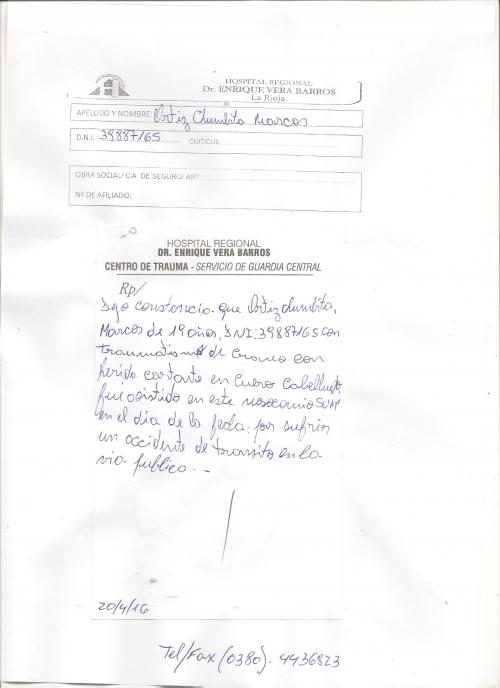 HOSPITAL REGIONAL
Dr. ENRIQUE VERA BARROS
La Rioja
APELLIDO Y NOMBRE: Ortiz Chumbita Marcos
D.N.I.: 39887165 CUIT/CUIL:
OBRA SOCIAL/ CIA. DE SEGURO/ ART
Nº DE AFILIADO:
HOSPITAL REGIONAL
DR. ENRIQUE VERA BARROS
CENTRO DE TRAUMA - SERVICIO DE GUARDIA CENTRAL
Rp/
Dejo constancia que Ortiz Chumbita,
Marcos de 19 años, DNI: 39887165 con
traumatismo de Craneo con
herida cortante en Cuero Cabelludo
fue asistido en este nosocomio
en el día de la fecha por sufrir
un accidente de transito en la
via publica.-
20/4/16
Tel/Fax (0380)- 4436823